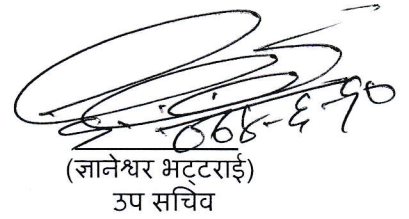 ०७४-६-१०
(ज्ञानेश्वर भट्टराई)
उप सचिव